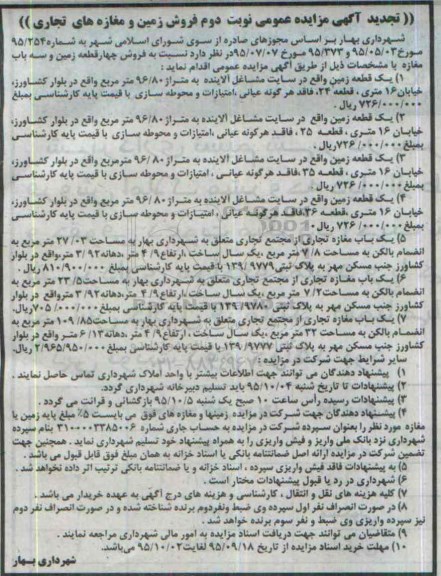 (( تجدید آگهی مزایده عمومی نوبت دوم فروش زمین و مغازه های تجاری ))
شهرداری بهار بر اساس مجوزهای صادره از سوی شورای اسلامی شهر به شماره ۹۵/۲۵۴
مورخ ۹۵/۰۵/۰۲ و ۹۵/۳۷۳ مورخ ۹۵/۰۷/۰۷ در نظر دارد نسبت به فروش چهار قطعه زمین و سه باب
مغازه با مشخصات ذیل از طریق آگهی مزایده عمومی اقدام نماید :
۱) یک قطعه زمین واقع در سایت مشاغل آلاینده به متراژ ۹۶/۸۰ متر مربع واقع در بلوار کشاورز،
خیابان ۱۶ متری ، قطعه ۲۴، فاقد هر گونه عیانی ،امتیازات و محوطه سازی با قیمت پایه کارشناسی بمبلغ
۷۳۶/۰۰۰/۰۰۰ ریال .
۲) یک قطعه زمین واقع در سایت مشاغل آلاینده به متراژ ۹۶/۸۰ مترمربع واقع در بلوار کشاورز،
خیابان ۱۶ متری ، قطعه ۲۵ ، فاقد هرگونه عیانی ، امتیازات و محوطه سازی با قیمت پایه کارشناسی
بمبلغ ۷۲۶/۰۰۰/۰۰۰ ریال .
۳) یک قطعه زمین واقع در سایت مشاغل آلاینده به متراژ ۹۶/۸۰ مترمربع واقع در بلوار کشاورز،
خیابان ۱۶ متری ، قطعه ۳۵ ،فاقد هرگونه عیانی ، امتیازات و محوطه سازی با قیمت پایه کارشناسی
بمبلغ ۷۲۶/۰۰۰/۰۰۰ ریال .
۴) یک قطعه زمین واقع در سایت مشاغل آلاینده به متراژ ۹۶/۸۰ متر مربع واقع در بلوار کشاورز،
خیابان ۱۶ متری ،قطعه ۳۶ ،فاقد هرگونه عیانی ، امتیازات و محوطه سازی با قیمت پایه کارشناسی
بمبلغ ۷۲۶/۰۰۰/۰۰۰ ریال .
۵) یک باب مغازه تجاری از مجتمع تجاری متعلق به شهرداری بهار به مساحت ۲۷/۰۳ متر مربع به
انضمام بالکن به مساحت ۷/۸ متر مربع ،یک سال ساخت ،ارتفاع ۴/۹ متر ،دهانه ۳/۹۲ مترواقع در بلوار
کشاورز جنب مسکن مهر به پلاک ثبتی ۱۳۹/۹۷۷۹ با قیمت پایه کارشناسی بمبلغ ۸۱۰/۹۰۰/۰۰۰ ریال .
۶) یک باب مغازه تجاری از مجتمع تجاری متعلق به شهرداری بهار به مساحت ۲۳/۵ متر مربع به
انضمام بالکن به مساحت ۷/۲ متر مربع ،یک سال ساخت ،ارتفاع ۴/۹ متر ،دهانه ۳/۹۲ مترواقع در بلوار
کشاورز جنب مسکن مهر به پلاک ثبتی ۱۳۹/۹۷۸۰ با قیمت پایه کارشناسی بمبلغ ۷۰۵/۰۰۰/۰۰۰ ریال.
۷) یک باب مغازه تجاری از مجتمع تجاری متعلق به شهرداری بهار به مساحت ۱۰۹/۸۵ متر مربع به
انضمام بالکن به مساحت ۳۲ متر مربع ،یک سال ساخت ،ارتفاع ۴/۹ متر ،دهانه ۶/۱۳ متر واقع در بلوار
کشاورز جنب مسکن مهر به پلاک ثبتی ۱۳۹/۹۷۷۷ با قیمت پایه کارشناسی بمبلغ ۲/۹۶۵/۹۵۰/۰۰۰ ریال.
سایر شرایط جهت شرکت در مزایده :
۱) پیشنهاد دهندگان می توانند جهت اطلاعات بیشتر با واحد املاک شهرداری تماس حاصل نمایند .
۲) پیشنهادات تا تاریخ شنبه ۹۵/۱۰/۰۴ باید تسلیم دبیرخانه شهرداری گردد.
۳) پیشنهادات رسیده رأس ساعت ۱۰ صبح یک شنبه ۹۵/۱۰/۵ بازگشائی و قرائت می گردد .
۴) پیشنهاد دهندگان جهت شرکت در مزایده زمینها و مغازه های فوق می بایست ۵٪ مبلغ پایه زمین یا
مغازه مورد نظر را بعنوان سپرده شرکت در مزایده به حساب جاری شماره ۳۱۰۰۰۰۳۳۸۵۰۰۶ بنام سپرده
شهرداری نزد بانک ملی واریز و فیش واریزی را به همراه پیشنهاد خود تسلیم شهرداری نماید . همچنین جهت
تضمین شرکت در مزایده ارائه اصل ضمانتنامه بانکی یا اسناد خزانه به همان مبلغ فوق قابل قبول می باشد .
۵) به پیشنهادات فاقد فیش واریزی سپرده ، اسناد خزانه و یا ضمانتنامه بانکی ترتیب اثر داده نخواهد شد .
۶) شهرداری در رد یا قبول پیشنهادات مختار است .
۷) کلیه هزینه های نقل و انتقال ، کارشناسی و هزینه های درج آگهی به عهده خریدار می باشد .
۸) در صورت انصراف نفر اول سپرده وی ضبط ونفردوم برنده شناخته شده و در صورت انصراف نفر دوم
نیز سپرده واریزی وی ضبط و نفر سوم برنده خواهد شد .
۹) متقاضیان می توانند جهت دریافت اسناد مزایده به امور مالی شهرداری مراجعه نمایند .
۱۰) مهلت خرید اسناد مزایده از تاریخ ۹۵/۰۹/۱۸ لغایت ۹۵/۱۰/۰۲ می باشد.
شهرداری بهار